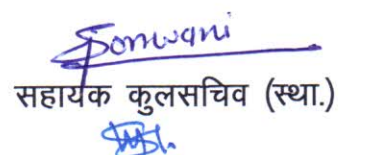 Sonwani
सहायक कुलसचिव (स्था.)